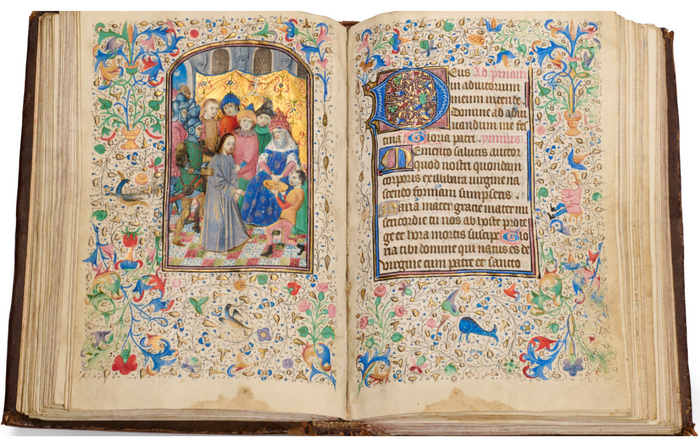 Deus Ad primam
in adiutorium
meum intende
Domine ad adiu
uandum me fes
tina Gloria patri ymnus
Memento salutis auctor
quod nostri quondam
corporis ex illibata uirgine na
scendo formam sumpseris
Maria mater gracie mater mi
sericordie tu nos ab hoste prote
ge et hora mortis suscipe Glo
ria tibi domine qui natus es de
uirgine cum patre et sancto